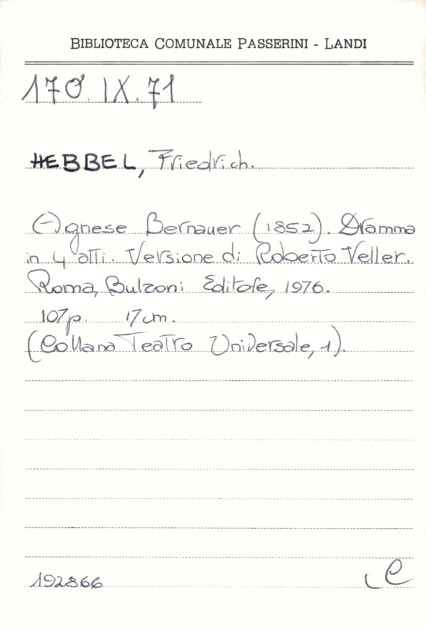 BIBLIOTECA COMUNALE PASSERINI - LANDI
170. IX. 71
HEBBEL, Friedrich.
Agnese Bernauer (1852). Dramma
in 4 atti. Versione di Roberto Veller.
Roma, Bulzoni Editore, 1976.
107p. 17cm.
(Collana Teatro Universale, 1).
192866